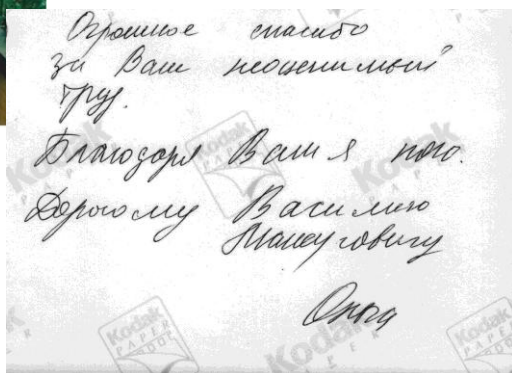 Огромное спасибо
за Ваш неоценимый
труд.
Благодаря Вам я пою.
Дорогому Василию
Ольга
Kodak
PAPER